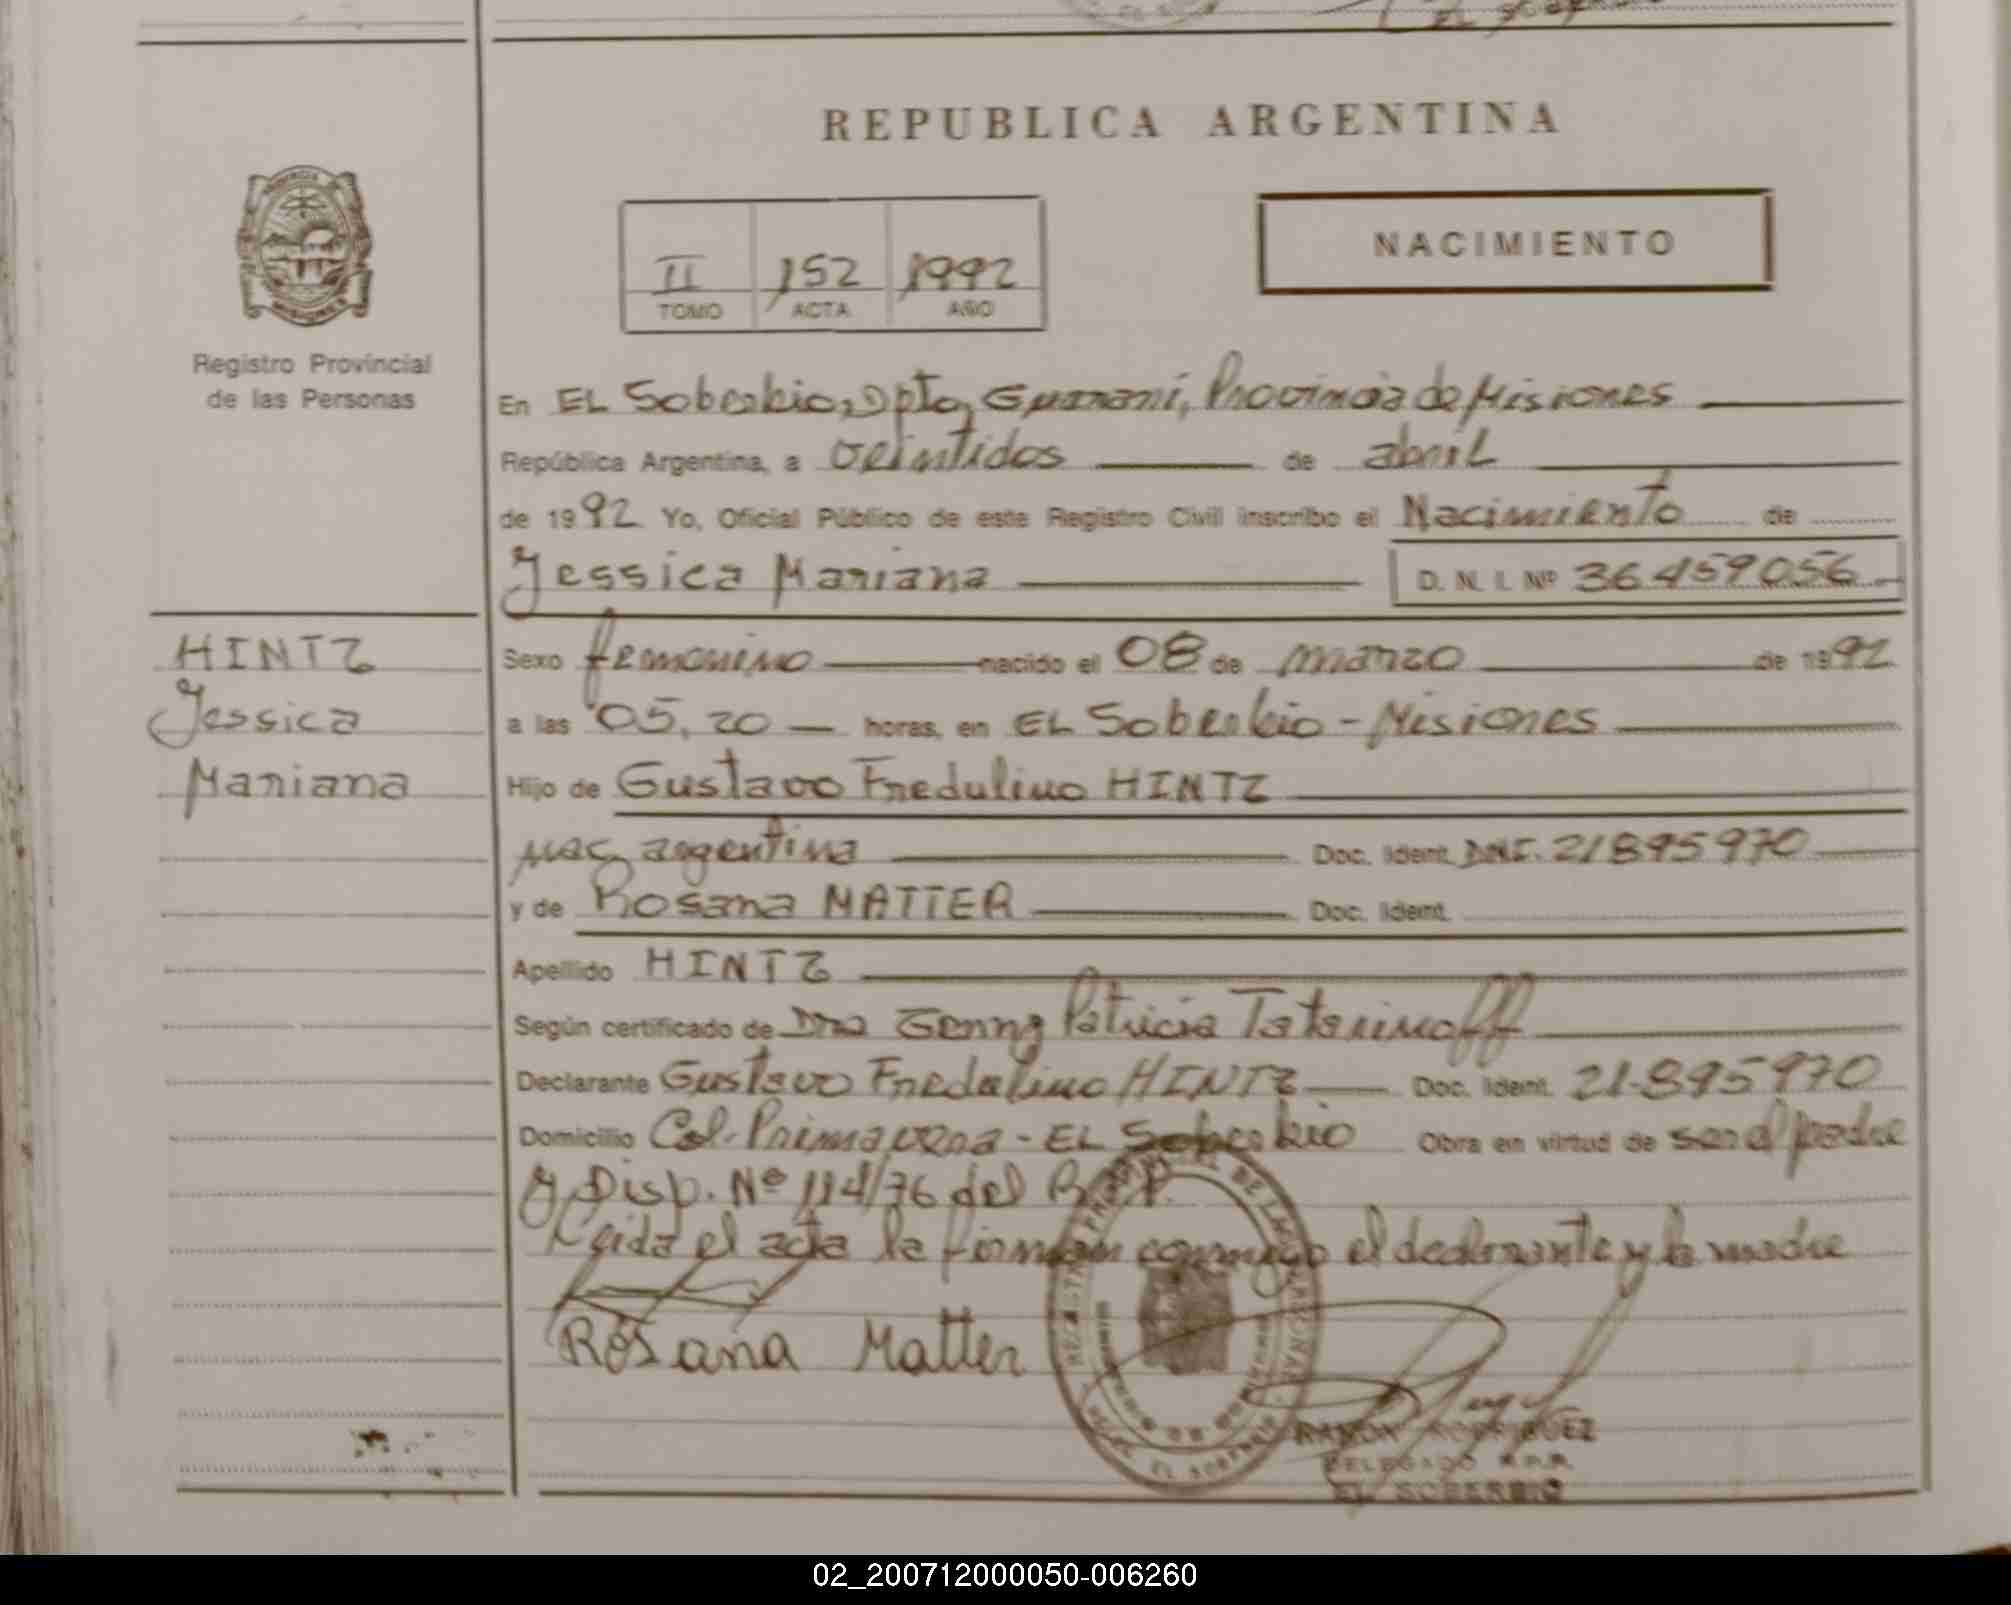 REPUBLICA ARGENTINA
NACIMIENTO
II 152 1992
TOMO ACTA AÑO
Registro Provincial
de las Personas
En EL Soberbio, Dpto, Guaraní, Provincia de Misiones
República Argentina, a veintidos de abril
de 1992 Yo, Oficial Público de este Registro Civil inscribo el Nacimiento de
Jessica Mariana D. N. I. Nº 36459056
HINTZ
Jessica
Mariana
Sexo femenino nacido el 08 de marzo de 1992
a las 05,20 horas, en EL Soberbio - Misiones
Hijo de Gustavo Fredulino HINTZ
nac, argentina Doc. Ident. DNI. 21895970
y de Rosana MATTER Doc. Ident.
Apellido HINTZ
Según certificado de Dra Genny Patricia Tatarinoff
Declarante Gustavo Fredulino HINTZ Doc. Ident. 21.895970
Domicilio Col. Primavera - EL Soberbio Obra en virtud de ser el padre
y Disp. Nº 114/76 del R.P.P.
Leida el acta la firman conmigo el declarante y la madre
Rosana Matter
RAMON RODRIGUEZ
DELEGADO R.P.P.
EL SOBERBIO
02_200712000050-006260